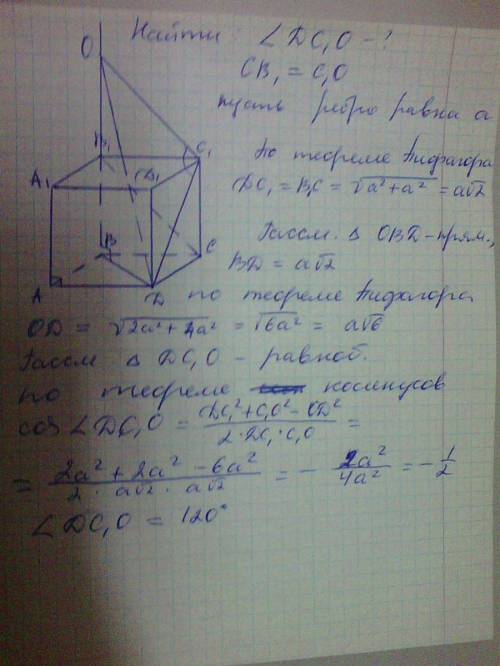 Найти: ∠DC₁O - ?
CB₁ = C₁O
пусть ребро равна a
O
B₁
C₁
A₁
D₁
По теореме Пифагора
DC₁ = B₁C = √a²+a² = a√2
Рассм. △ OBD - прям.,
B
C
BD = a√2
A
D
по теореме Пифагора
OD = √2a² + 4a² = √6a² = a√6
Рассм △ DC₁O - равноб.
по теореме косинусов
cos ∠DC₁O = DC₁² + C₁O² - OD² / 2·DC₁·C₁O =
= 2a² + 2a² - 6a² / 2·a√2·a√2 = - 2a² / 4a² = - 1/2
∠DC₁O = 120°